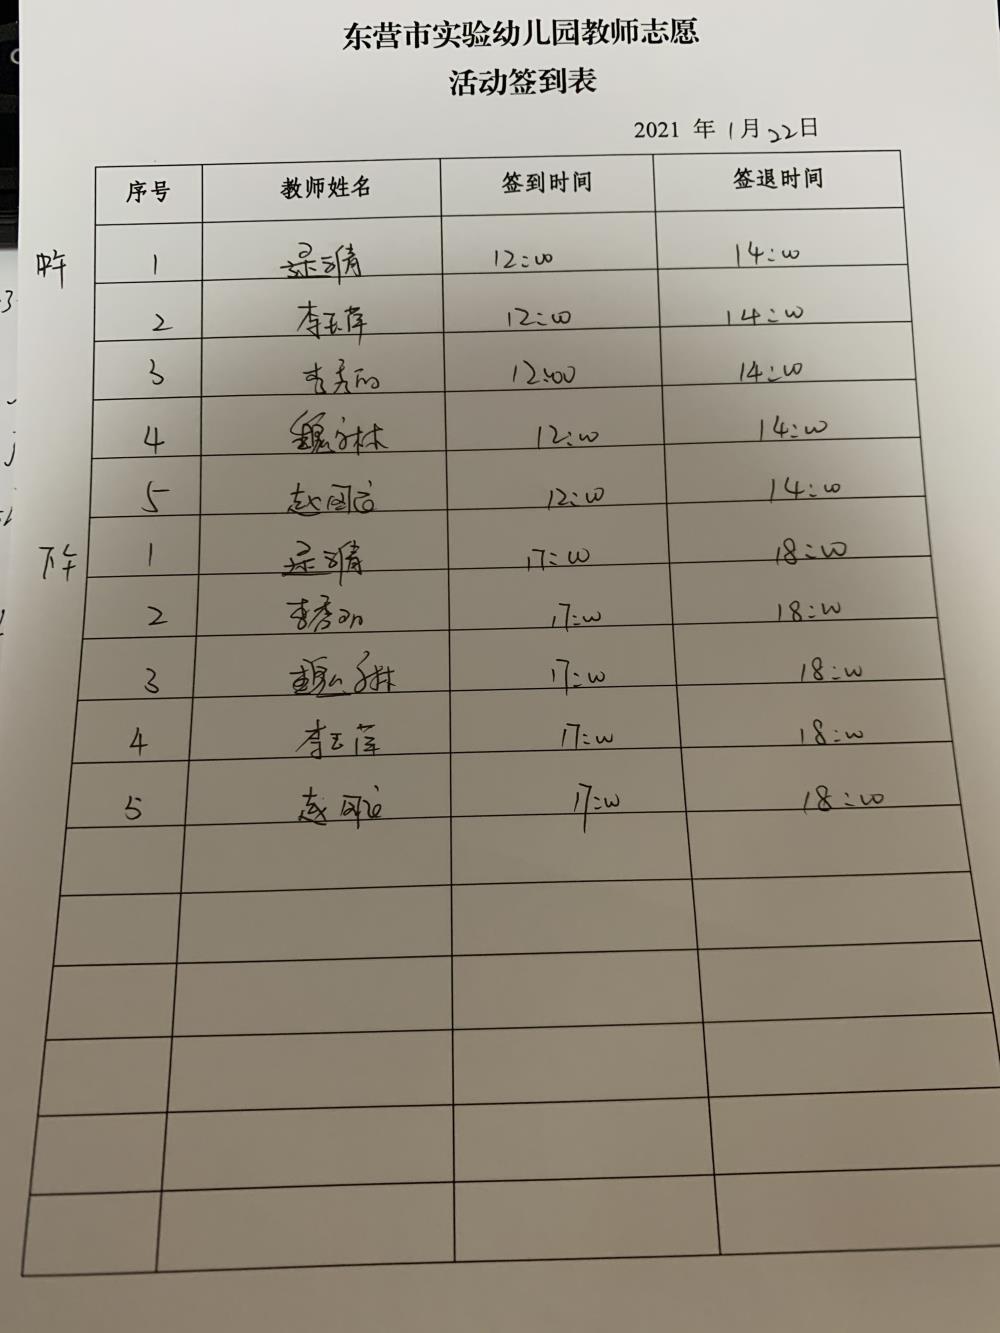 东营市实验幼儿园教师志愿
活动签到表
2021 年 1月 22日
序号 教师姓名 签到时间 签退时间
中午 1 12:00 14:00
2 李玉萍 12:00 14:00
3 李秀 12:00 14:00
4 魏 林 12:00 14:00
5 赵国 12:00 14:00
下午 1 17:00 18:00
2 李秀 17:00 18:00
3 魏 林 17:00 18:00
4 李玉萍 17:00 18:00
5 赵国 17:00 18:00